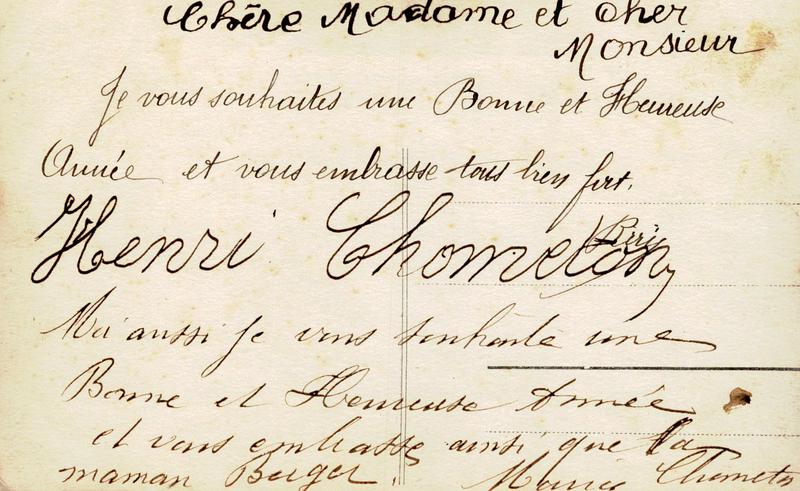 Chère Madame et Cher
Monsieur
Je vous souhaites une Bonne et Heureuse
Année et vous embrasse tous bien fort.
Henri Chometon
Moi aussi je vous souhaite une
Bonne et Heureuse Année
et vous embrasse ainsi que la
maman Berger. Marie Chometon